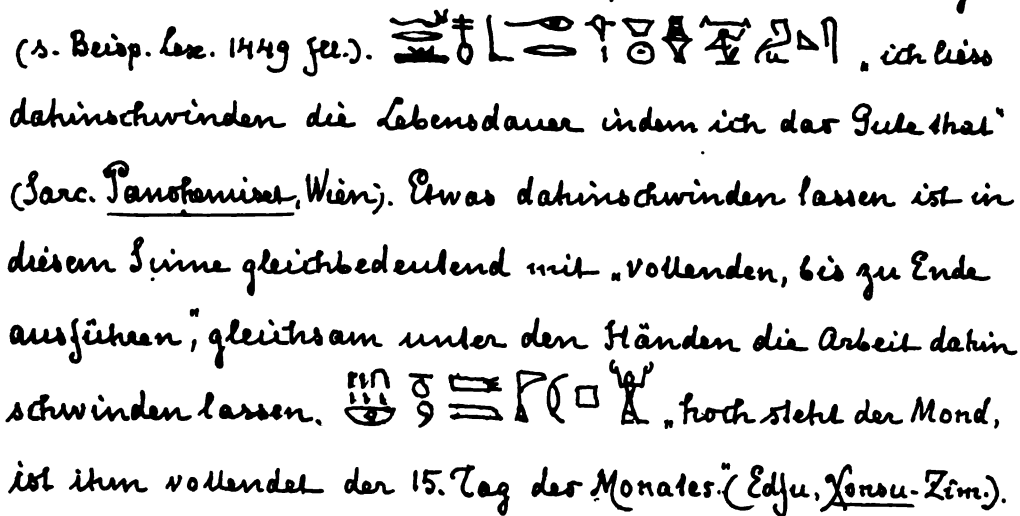 (s. Beisp. Lex. 1449 fll.). „ich liess
dahinschwinden die Lebensdauer indem ich das Gute that“
(Sarc. Panehemiset, Wien). Etwas dahinschwinden lassen ist in
diesem Sinne gleichbedeutend mit „vollenden, bis zu Ende
ausführen“, gleichsam unter den Händen die Arbeit dahin
schwinden lassen. „hoch steht der Mond,
ist ihm vollendet der 15. Tag des Monates.“ (Edfu, Xonsu-Zim.).